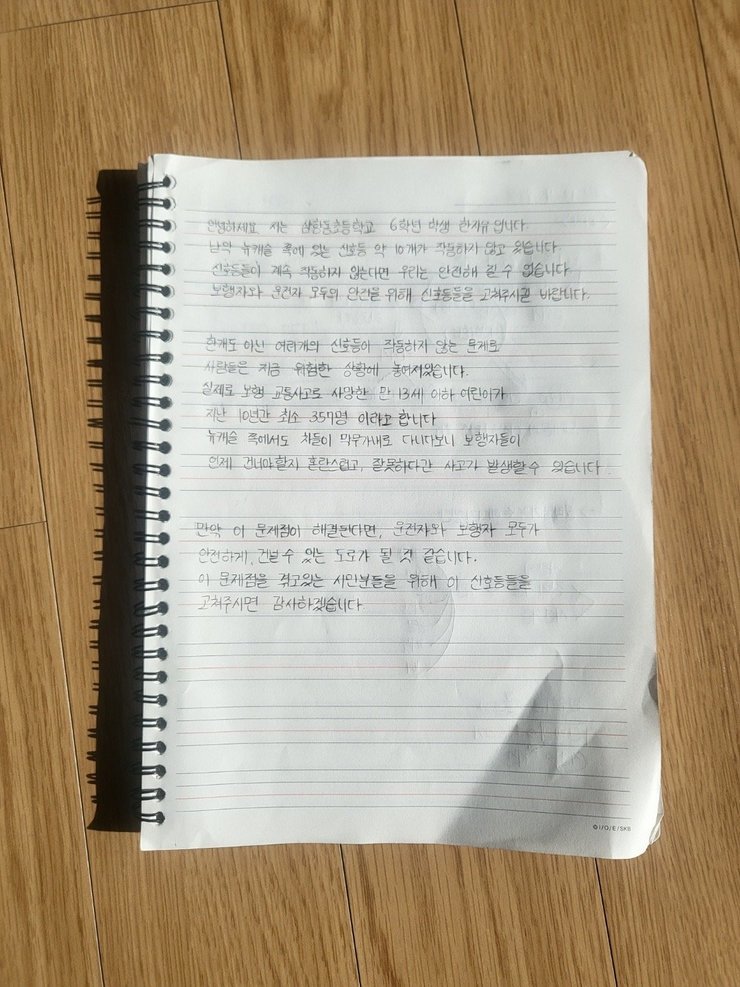 안녕하세요 저는 삼향동초등학교 6학년 학생 한지유 입니다.
남악 뉴캐슬 쪽에 있는 신호등 약 10개가 작동하지 않고 있습니다.
신호등들이 계속 작동하지 않는다면 우리는 안전해 질 수 없습니다
보행자와 운전자 모두의 안전을 위해 신호등들을 고쳐주시길 바랍니다.
한개도 아닌 여러개의 신호등이 작동하지 않는 문제로
사람들은 지금 위험한 상황에, 놓여져있습니다.
실제로 보행 교통사고로 사망한 만 13세 이하 어린이가
지난 10년간 최소 357명 이라고 합니다
뉴캐슬 쪽에서도 차들이 막무가내로 다니다보니 보행자들이
언제 건너야할지 혼란스럽고, 잘못하다간 사고가 발생할수 있습니다
만약 이 문제점이 해결된다면, 운전자와 보행자 모두가
안전하게, 건널 수 있는 도로가 될 것 같습니다.
이 문제점을 겪고있는 시민분들을 위해 이 신호등들을
고쳐주시면 감사하겠습니다.
©I/O/E/SKB